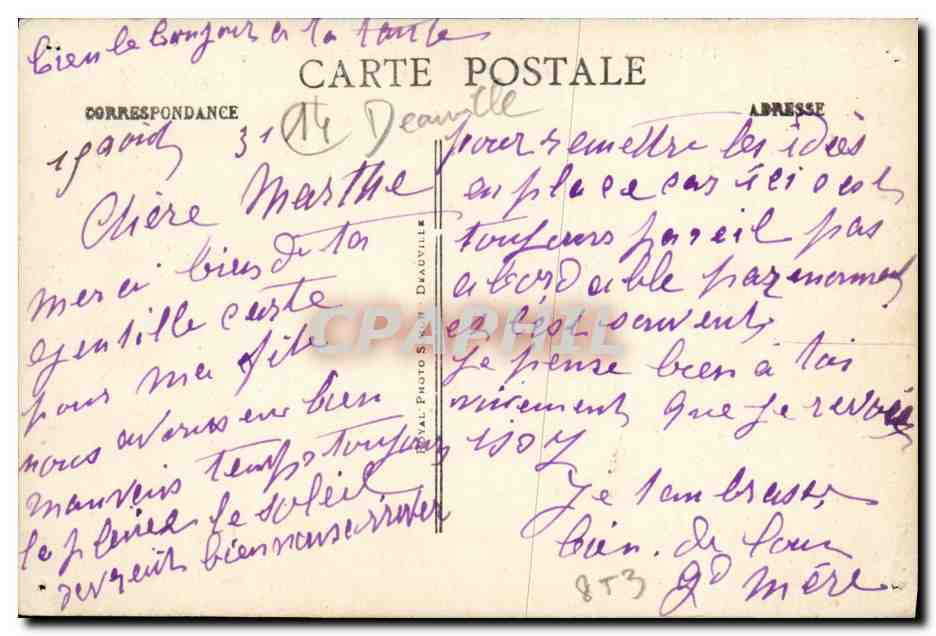 bien le bonjour a la tante
CARTE POSTALE
CORRESPONDANCE
ADRESSE
14 Deauville
19 août 31
Chère Marthe
merci bien de ta
gentille carte
pour ma fête
nous avons eu bien
mauvais temps toujours
la pluie le soleil
bien nous arriver
ROYAL-PHOTO DEAUVILLE
pour remettre les idées
en place car ici c est
toujours pareil pas
abordable par moment
et c'est souvent
Je pense bien à toi
que je
Je t'embrasse
bien de loin
Gd mère
853
CPAPHIL